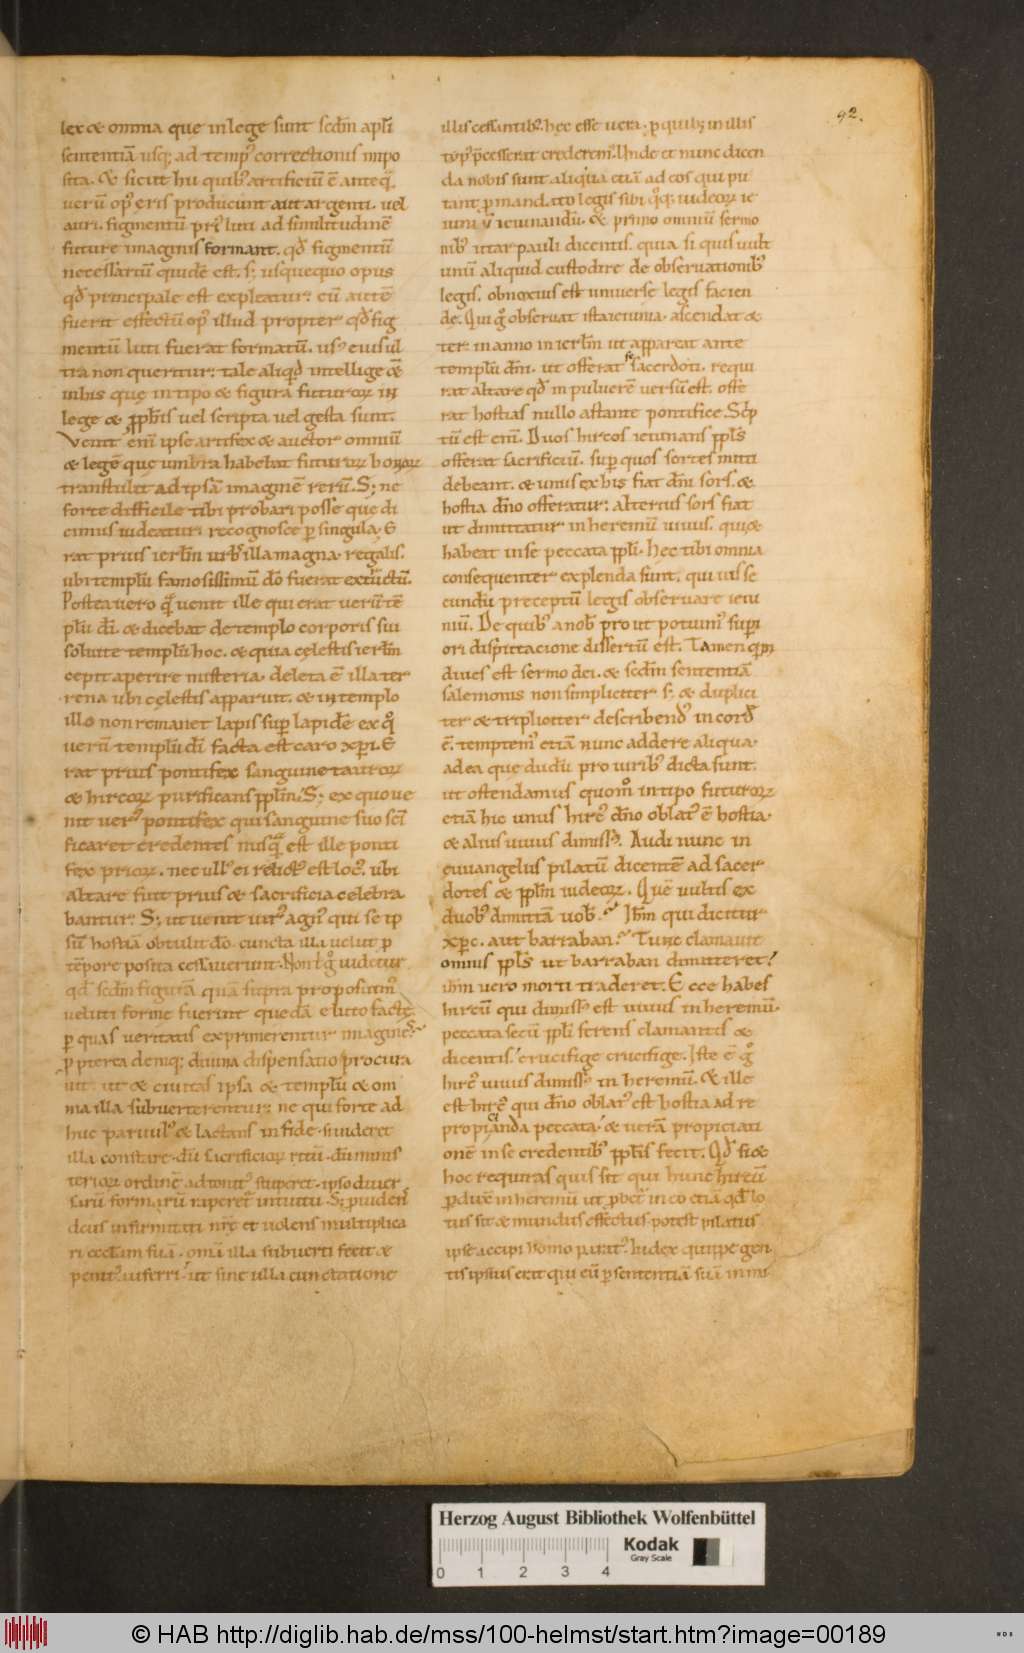 92.
lex & omnia que in lege sunt scdm apłi
sententiā usq; ad temp' correctionis impo
sita. & sicut hii quib' artificiū ē ante q̄
verū op' eris producunt aut argenti. vel
auri. figmentū pri' luti ad similitudinē
future imaginis formant. qd figmentū
necessariū quidē est. s; usquequo opus
qd principale est expleatur; cū autē
fuerit effectū op' illud propter qd fig
mentū luti fuerat formatū. us' eius ul
tra non queritur; tale aliqd intellige &
in his que in tipo & figura futuroꝝ in
lege & pph̄is vel scripta vel gesta sunt.
Venit eni ipse artifex & auctor omniū
& legē que umbrā habebat futuroꝝ bonoꝝ
transtulit ad ipsā imaginē rerū. S; ne
forte difficile tibi probari posse que di
cimus videatur; recognosce p singula; E
rat prius ierl̄m urb' illa magna. regalis.
ubi templū famosissimū dō fuerat extructū.
Postea vero q̄ venit ille qui erat verū tē
plū di. & dicebat de templo corporis sui
solvite templū hoc. & quia cęlestis ierl̄m
cepit aperire misteria. deleta ē illa ter
rena ubi cęlestis apparuit. & in templo
illo non remanet lapis sup lapidē ex q°
verū templū di facta est caro xp̄i. E
rat prius pontifex sanguine tauroꝝ
& hircoꝝ purificans pp̄lm; S; ex quo ve
nit ver' pontifex qui sanguine suo sc̄i
ficaret credentes nusq̄ est ille ponti
fex prioꝝ. nec ull' ei relict' est loc'. ubi
altare fuit prius & sacrificia celebra
bantur; S; ut venit ver' agn' qui se ip
sū hostiā obtulit dō. cuncta illa velut p
tēpore posita cessaverunt. Non t g° videtur
qd scdm figurā quā supra proposuim'
veluti forme fuerint quedā e luto facte
p quas veritatis exprimerentur imagines?
ppterea deniq; divina dispensatio procura
vit. ut & civitas ipsa & templū & om
nia illa subverterentur; ne qui forte ad
huc parvul' & lactans in fide. si videret
illa constare. dū sacrificioꝝ ritū. dū minis
terioꝝ ordinē adtonit' stuperet. ipso diver
saru formarū raperet' intuitu. S; pvidens
deus infirmitati nr̄e et volens multiplica
ri eccl̄am suā. omīa illa subverti fecit &
penit' auferri. ut sine ulla cunctatione
illis cessantib'. hec esse vera. p quib; in illis
typ' p̄cesserat crederem'. Unde et nunc dicen
da nobis sunt aliqua etiā ad eos qui pu
tant p mandato legis sibi q°q; iudeoꝝ ie
iuniū ieiunandū. & primo omniū sermo
nib' utar pauli dicentis. quia si quis vult
unū aliquid custodire de observationib'
legis. obnoxius est universe legis facien
de. Qui g° observat ista ieiunia. ascendat &
ter in anno in ierl̄m ut appareat ante
templū dn̄i. ut offerat se sacerdoti. requi
rat altare qd in pulverē versū est. offe
rat hostias nullo astante pontifice. Scp
tū est eni. Duos hircos ieiunans pp̄ls
offerat sacrificiū. sup quos sortes mitti
debeant. & unus ex his fiat dn̄i sors. &
hostia dn̄o offeratur; alterius sors fiat
ut dimittatur in heremū vivus. qui &
habeat in se peccata pp̄li. Hec tibi omnia
consequenter explenda sunt. qui vis se
cundū preceptū legis observare ieiu
niū. De quib' a nob' prout potuim' supi
ori disputacione dissertū est. Tamen qm
dives est sermo dei. & scdm sententiā
salemonis non simpliciter s; & duplici
ter & tripliciter describend' in corde
ē. temptem' etiā nunc addere aliqua.
ad ea que dudū pro virib' dicta sunt.
ut ostendamus quom° in tipo futuroꝝ
etiā hic unus hirc' dn̄o oblat' ē hostia.
& alius vivus dimiss'. Audi nunc in
euvangeliis pilatū dicentē ad sacer
dotes & pp̄lm iudeoꝝ. Quē vultis ex
duob' dimittā vob'? Ihm qui dicitur
xp̄c. aut barraban? Tunc clamavit
omnis pp̄ls ut barraban dimitteret?
ihm vero morti traderet. Ecce habes
hircū qui dimiss' est vivus in heremū.
peccata secū pp̄li ferens clamantis &
dicentis. crucifige crucifige. Iste ē g°
hirc' vivus dimiss' in heremū. & ille
est hirc' qui dn̄o oblat' est hostia ad re
propicianda peccata. & verā propiciati
onē in se credentib' pp̄lis fecit. Qd si &
hoc requiras quis sit qui hunc hircū
pduxē in heremū ut pbet' in eo etiā qd lo
tus sit & mundus effectus. potest pilatus
ipse accipi homo parat'. Iudex quippe gen
tis ipsius erat qui eū p sententiā suā in mi
Herzog August Bibliothek Wolfenbüttel
Kodak
Gray Scale
0 1 2 3 4
© HAB http://diglib.hab.de/mss/100-helmst/start.htm?image=00189